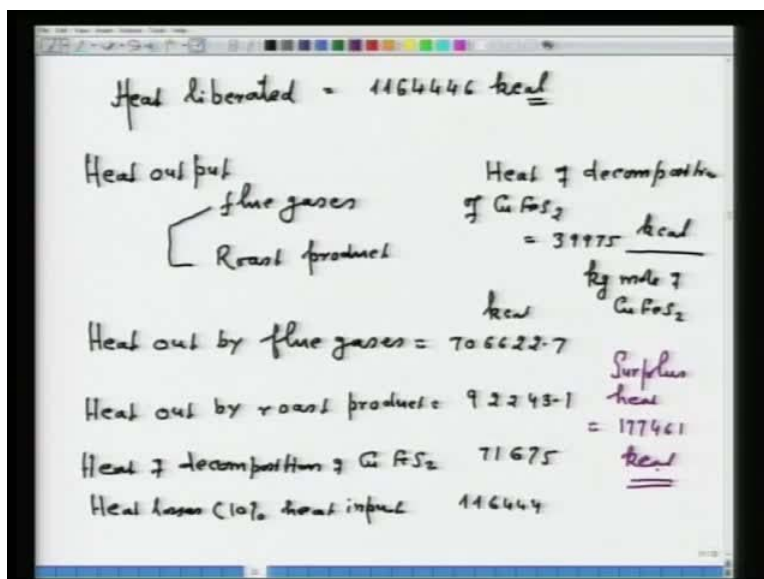 Heat liberated = 1164446 kcal
Heat output
flue gases
Roast product
Heat of decomposition
of CuFeS2
= 39975 kcal
kg mole of
CuFeS2
kcal
Heat out by flue gases = 706622.7
Heat out by roast product = 92243.1
Heat of decomposition of CuFeS2 71675
Heat losses (10% heat input 116444
Surplus
heat
= 177461
kcal